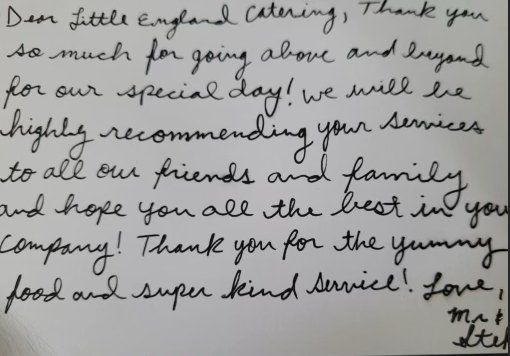 Dear Little England Catering, Thank you
so much for going above and beyond
for our special day! We will be
highly recommending your services
to all our friends and family
and hope you all the best in you
Company! Thank you for the yummy
food and super kind service! Love,
Mr &